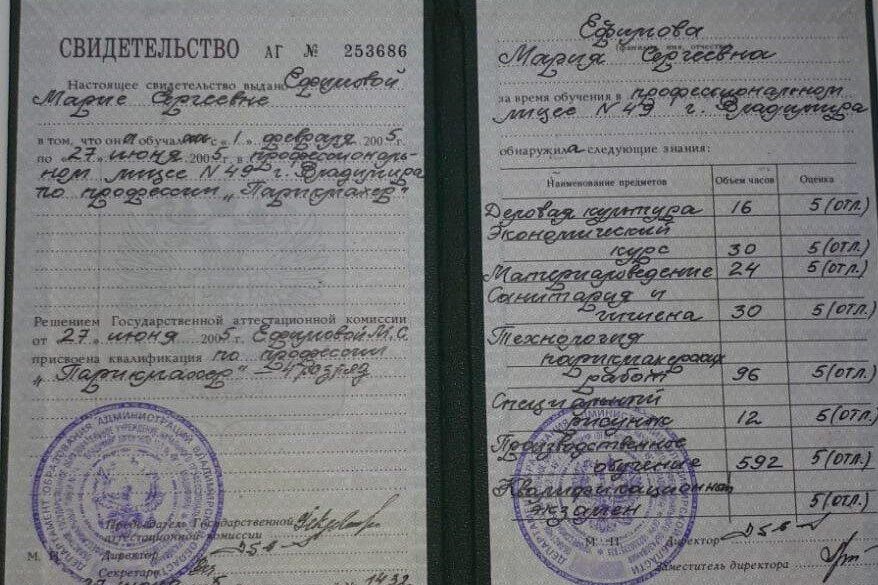 СВИДЕТЕЛЬСТВО АГ № 253686
Настоящее свидетельство выдано Ефимовой
Марие Сергеевне
в том, что она обучалась с «1» февраля 2005 г.
по «27» июня 2005 г. в профессиональ-
ном лицее N 49 г. Владимира
по профессии „Парикмахер"
Решением Государственной аттестационной комиссии
от «27» июня 2005 г. Ефимовой М.С.
присвоена квалификация по профессии
„Парикмахер" – 4 разряд
Председатель Государственной
аттестационной комиссии
М. П. Директор
Секретарь
Ефимова
(фамилия, имя, отчество)
Мария Сергеевна
за время обучения в профессиональном
лицее N 49 г. Владимира
обнаружила следующие знания:
Наименование предметов Объем часов Оценка
Деловая культура 16 5 (отл.)
Экономический
курс 30 5 (отл.)
Материаловедение 24 5 (отл.)
Санитария и
гигиена 30 5 (отл.)
Технология
парикмахерских
работ 96 5 (отл.)
Специальный
рисунок 12 5 (отл.)
Производственное
обучение 592 5 (отл.)
Квалификационный
экзамен 5 (отл.)
М. П. Директор
Заместитель директора